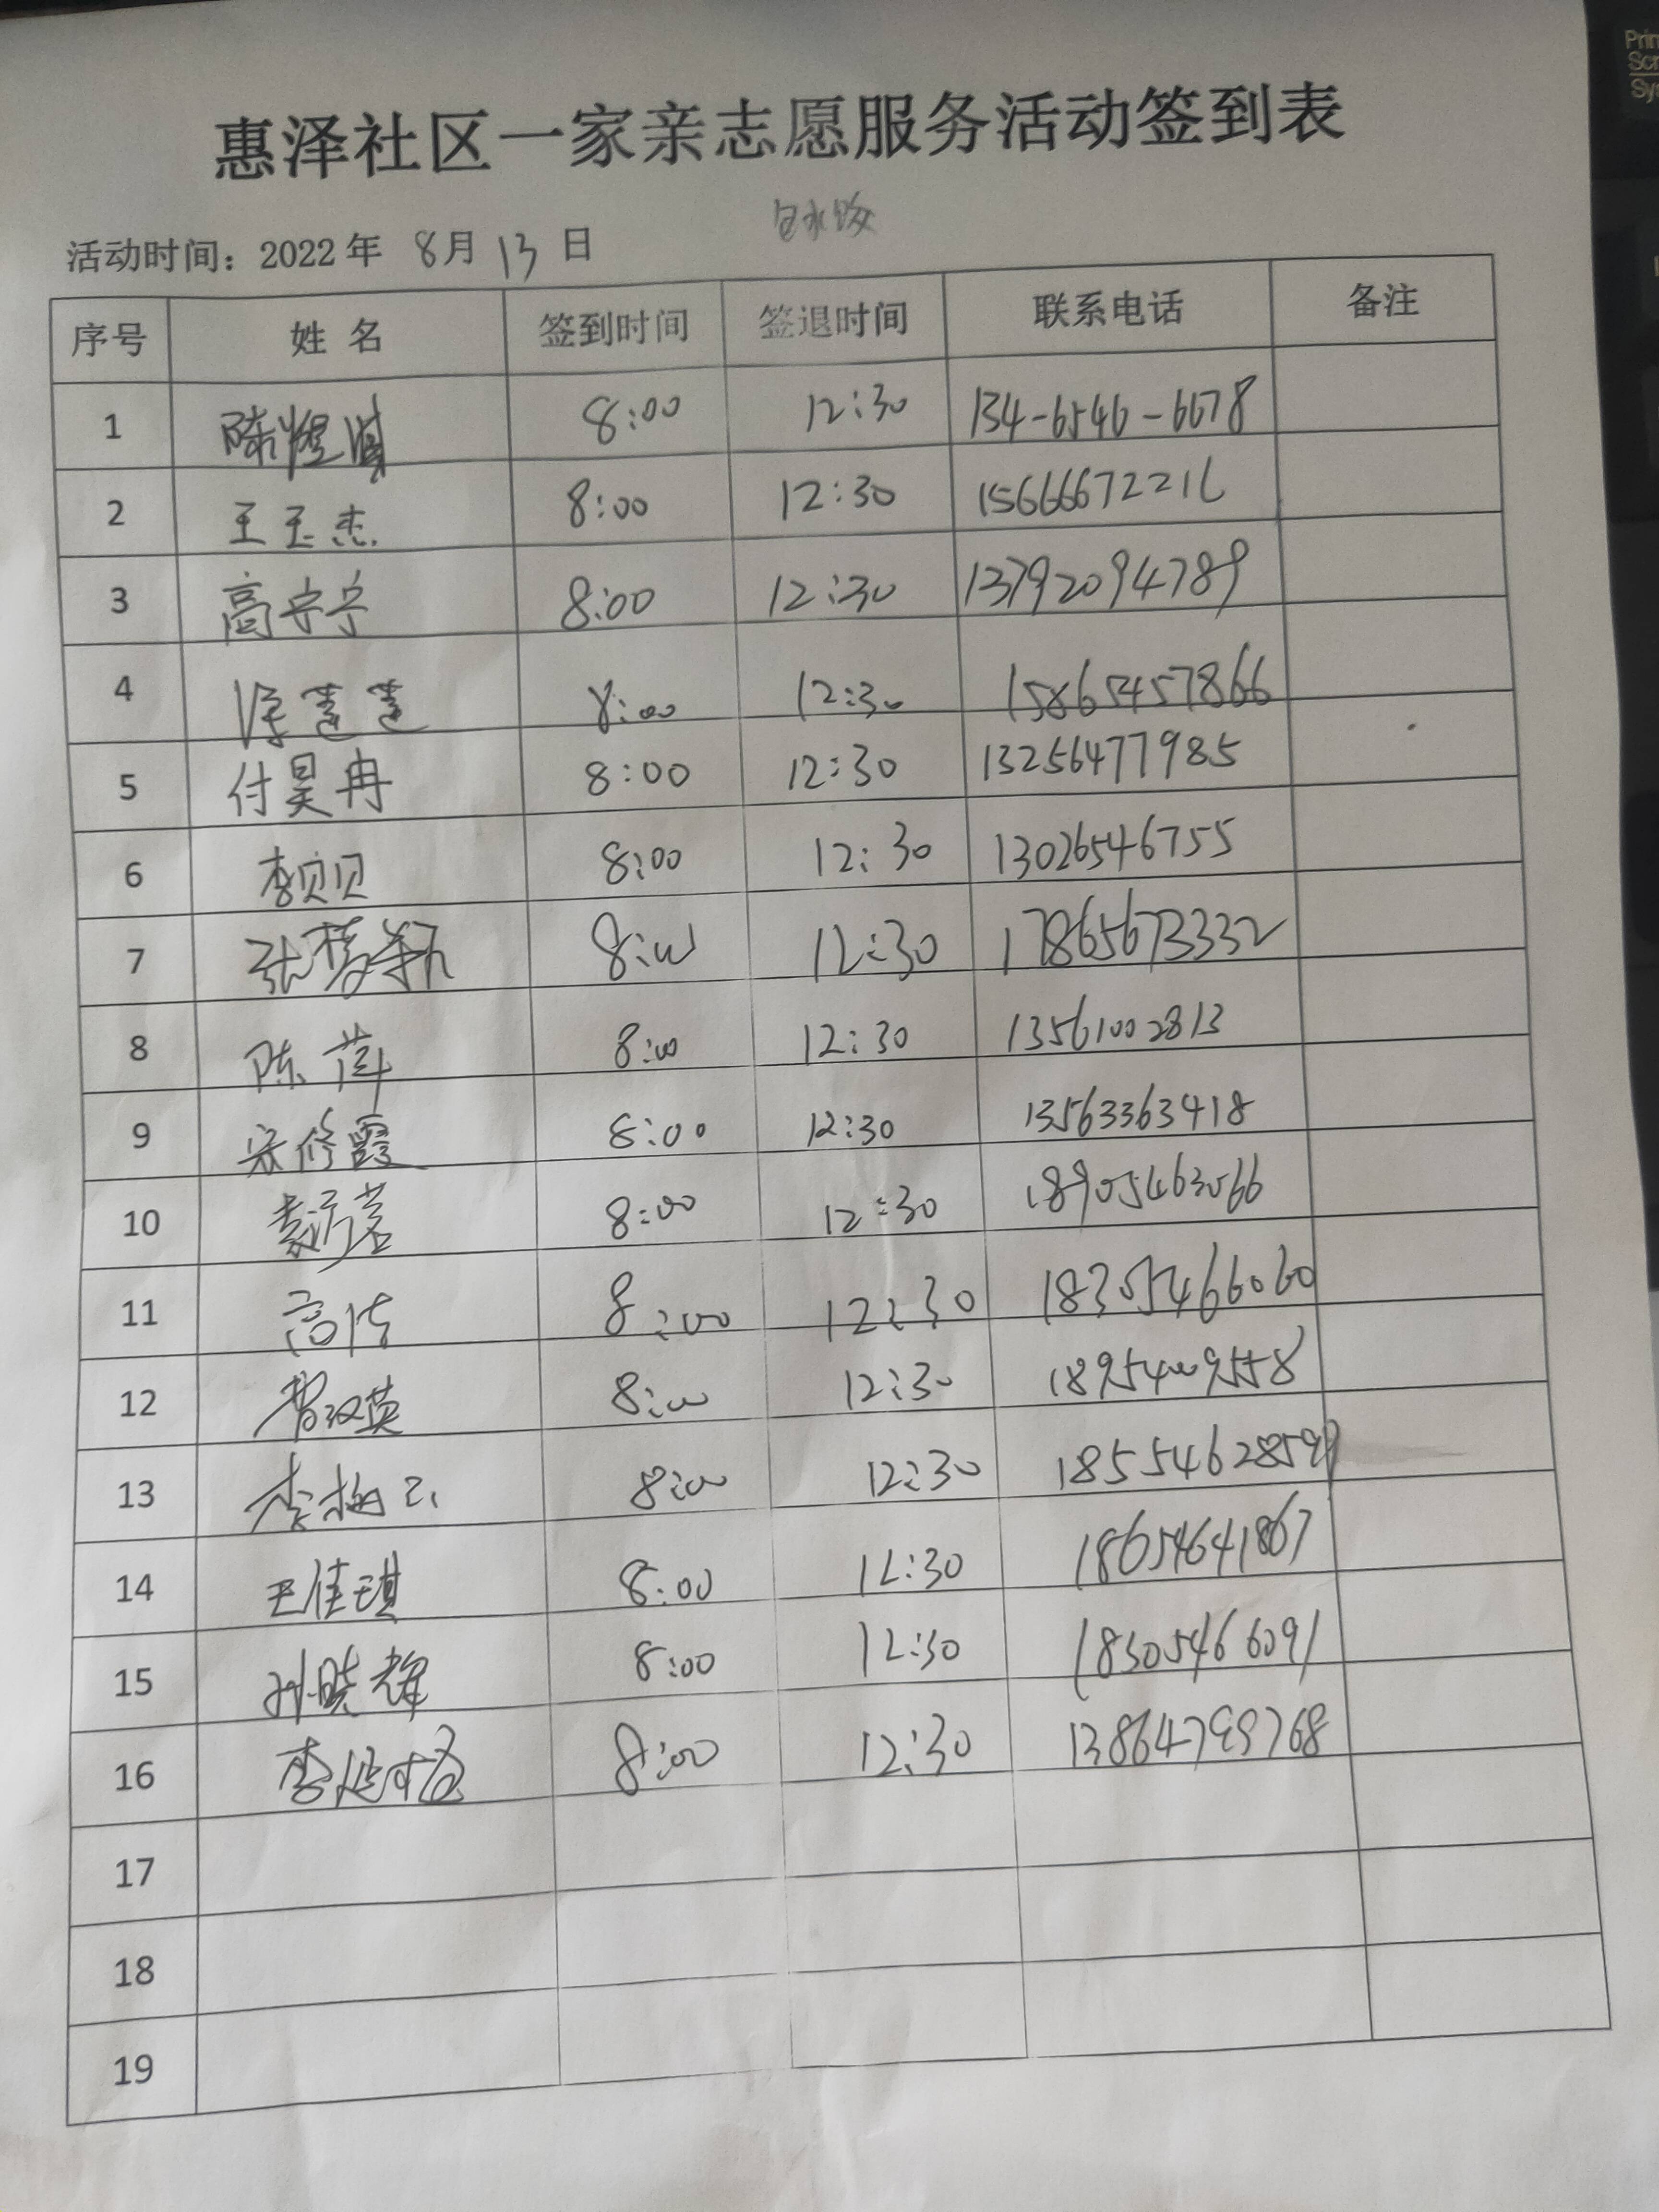 惠泽社区一家亲志愿服务活动签到表
包水饺
活动时间：2022年 8月 13 日
序号 姓 名 签到时间 签退时间 联系电话 备注
1 陈煜 8:00 12:30 134-6546-6678
2 王玉杰 8:00 12:30 15666672216
3 高宁宁 8:00 12:30 13792094789
4 8:00 12:30 15865457866
5 付昊冉 8:00 12:30 13256477985
6 李贝贝 8:00 12:30 13026546755
7 张梦 8:00 12:30 17865673332
8 陈萍 8:00 12:30 13561002813
9 宋修霞 8:00 12:30 13563363418
10 8:00 12:30 18905463066
11 高倩 8:00 12:30 18305466060
12 8:00 12:30 18954009558
13 李梅 8:00 12:30 18554628599
14 王佳琪 8:00 12:30 18654641867
15 孙晓辉 8:00 12:30 18305466091
16 李延 8:00 12:30 13864799768
17
18
19
Prin
Scr
Sys